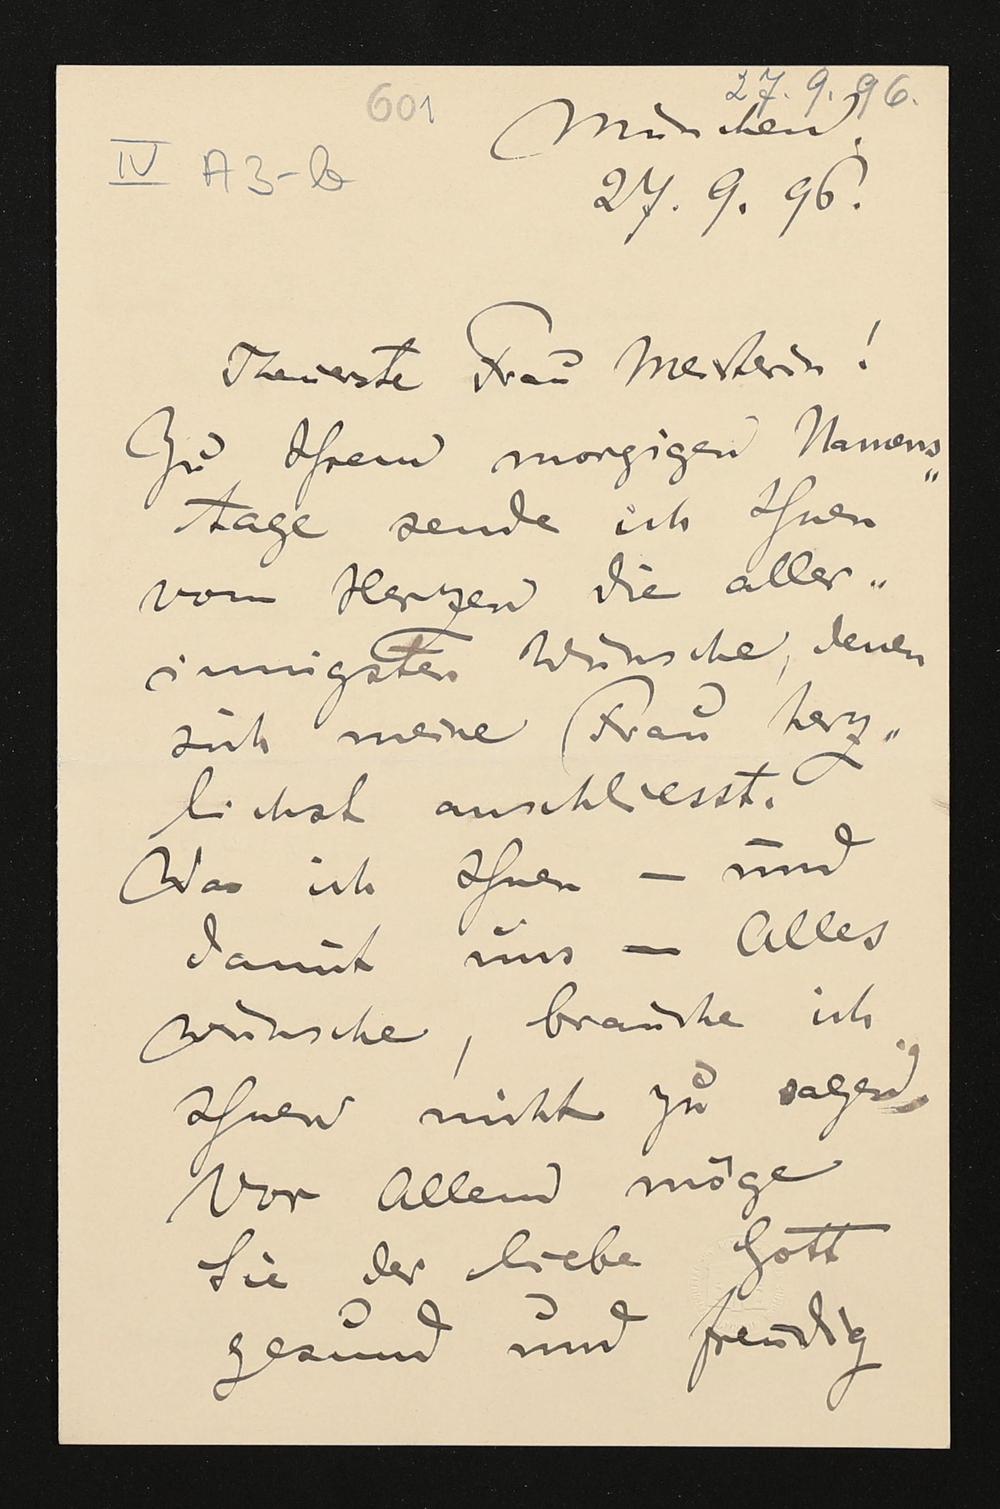 27.9.96.
601
IV A3-b
München.
27. 9. 96.
Theuerste Frau Meisterin!
Zu Ihrem morgigen Namens„
tage sende ich Ihnen
vom Herzen die aller„
innigsten Wünsche, denen
sich meine Frau herz„
lichst anschliesst.
Was ich Ihnen – und
damit uns – Alles
wünsche, brauche ich
Ihnen nicht zu sagen,
Vor Allem möge
Sie der liebe Gott
gesund und freudig